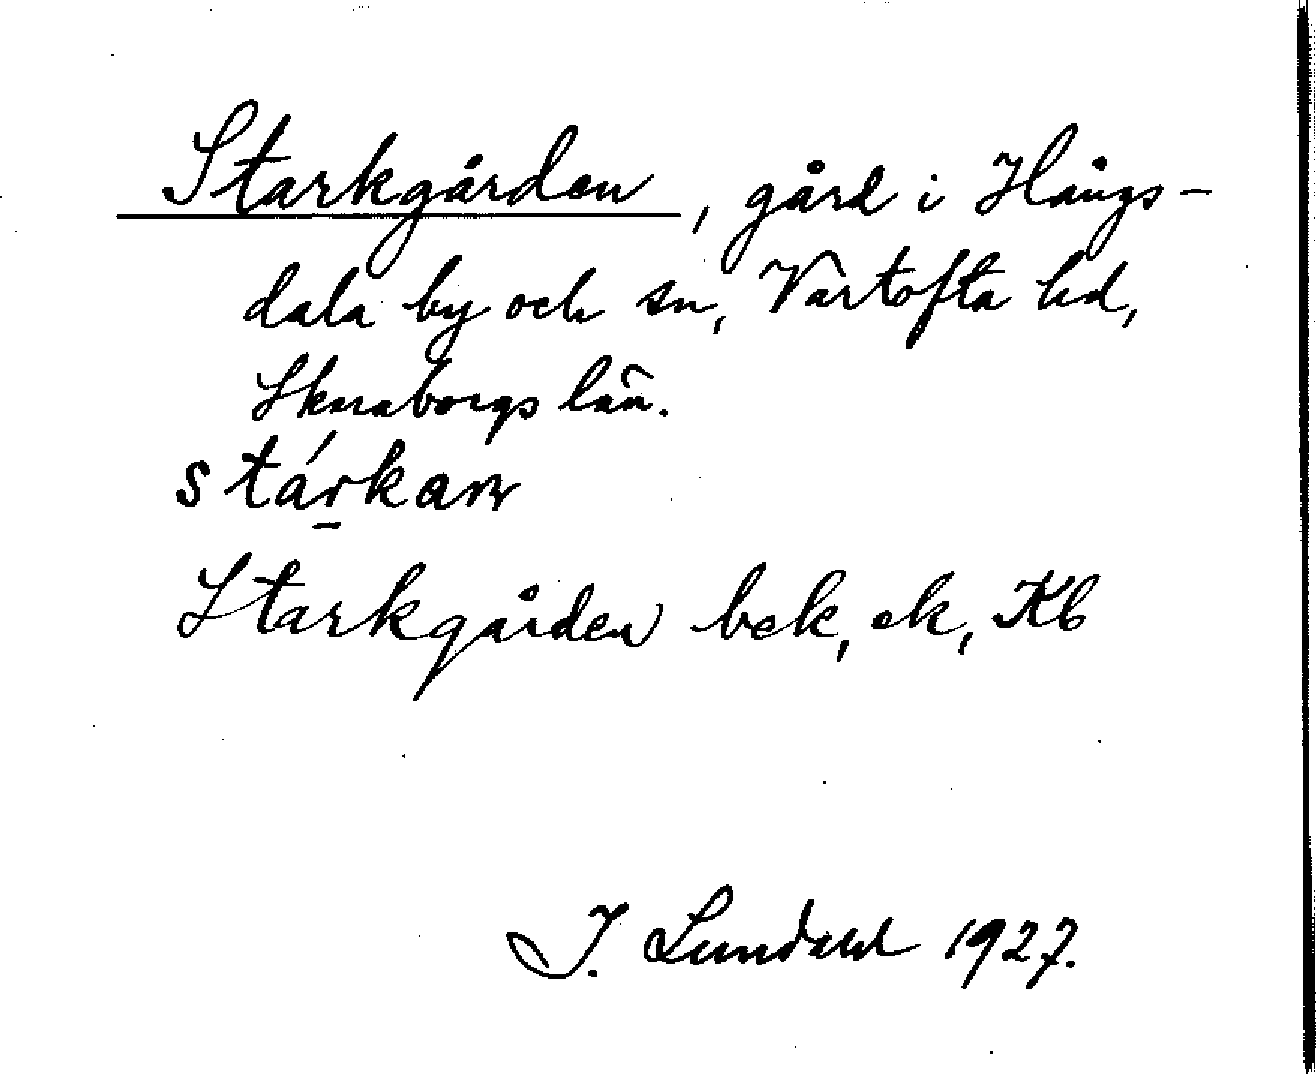 Starkgården, gård i Hångs-
dala by och sn, Vartofta hd,
Skaraborgs län.
stárkan
Starkgården bek, ek, Kb
I. Lundahl 1927.